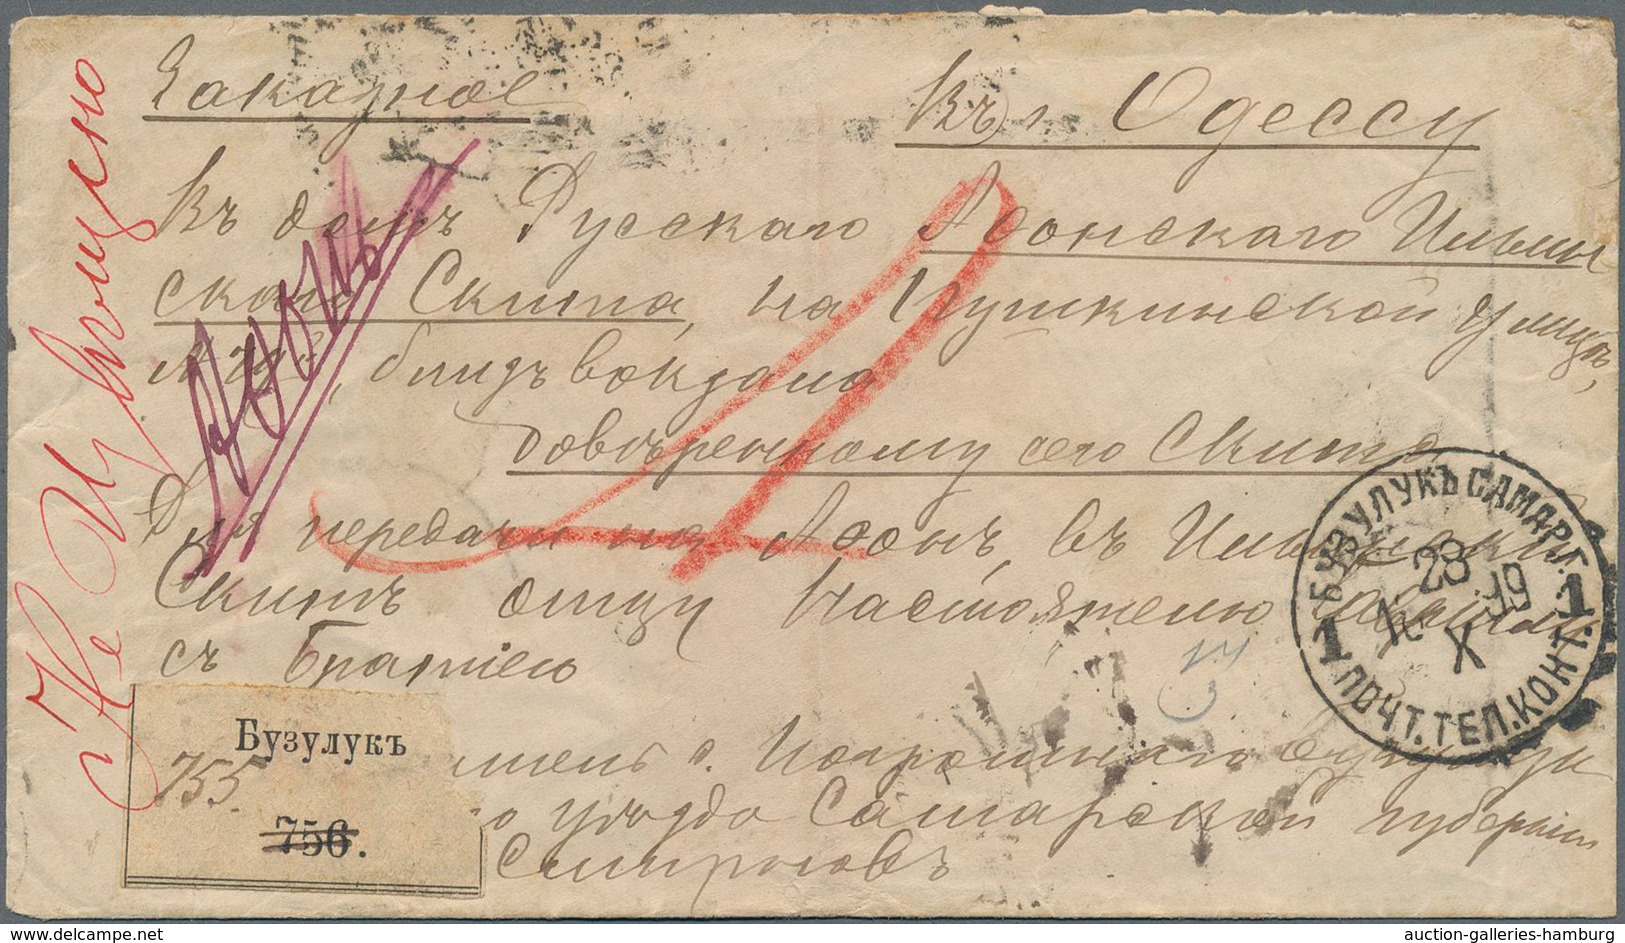 Заказное
Въ г. Одессу
Въ домъ Русскаго Афонскаго Ильин
скаго Скита, на Пушкинской улицѣ,
близъ вокзала
довѣренному сего Скита
Для передачи на Афонъ въ Ильинскій
Скитъ отцу Настоятелю
съ Братіею
Самарской губерніи
Смирновъ
Афонъ
Бузулукъ
755.
756.
БУЗУЛУКЪ САМАР. Г.
28
X
99
1
1
ПОЧТ. ТЕЛ. КОНТ.
delcampe.net
auction-galleries-hamburg